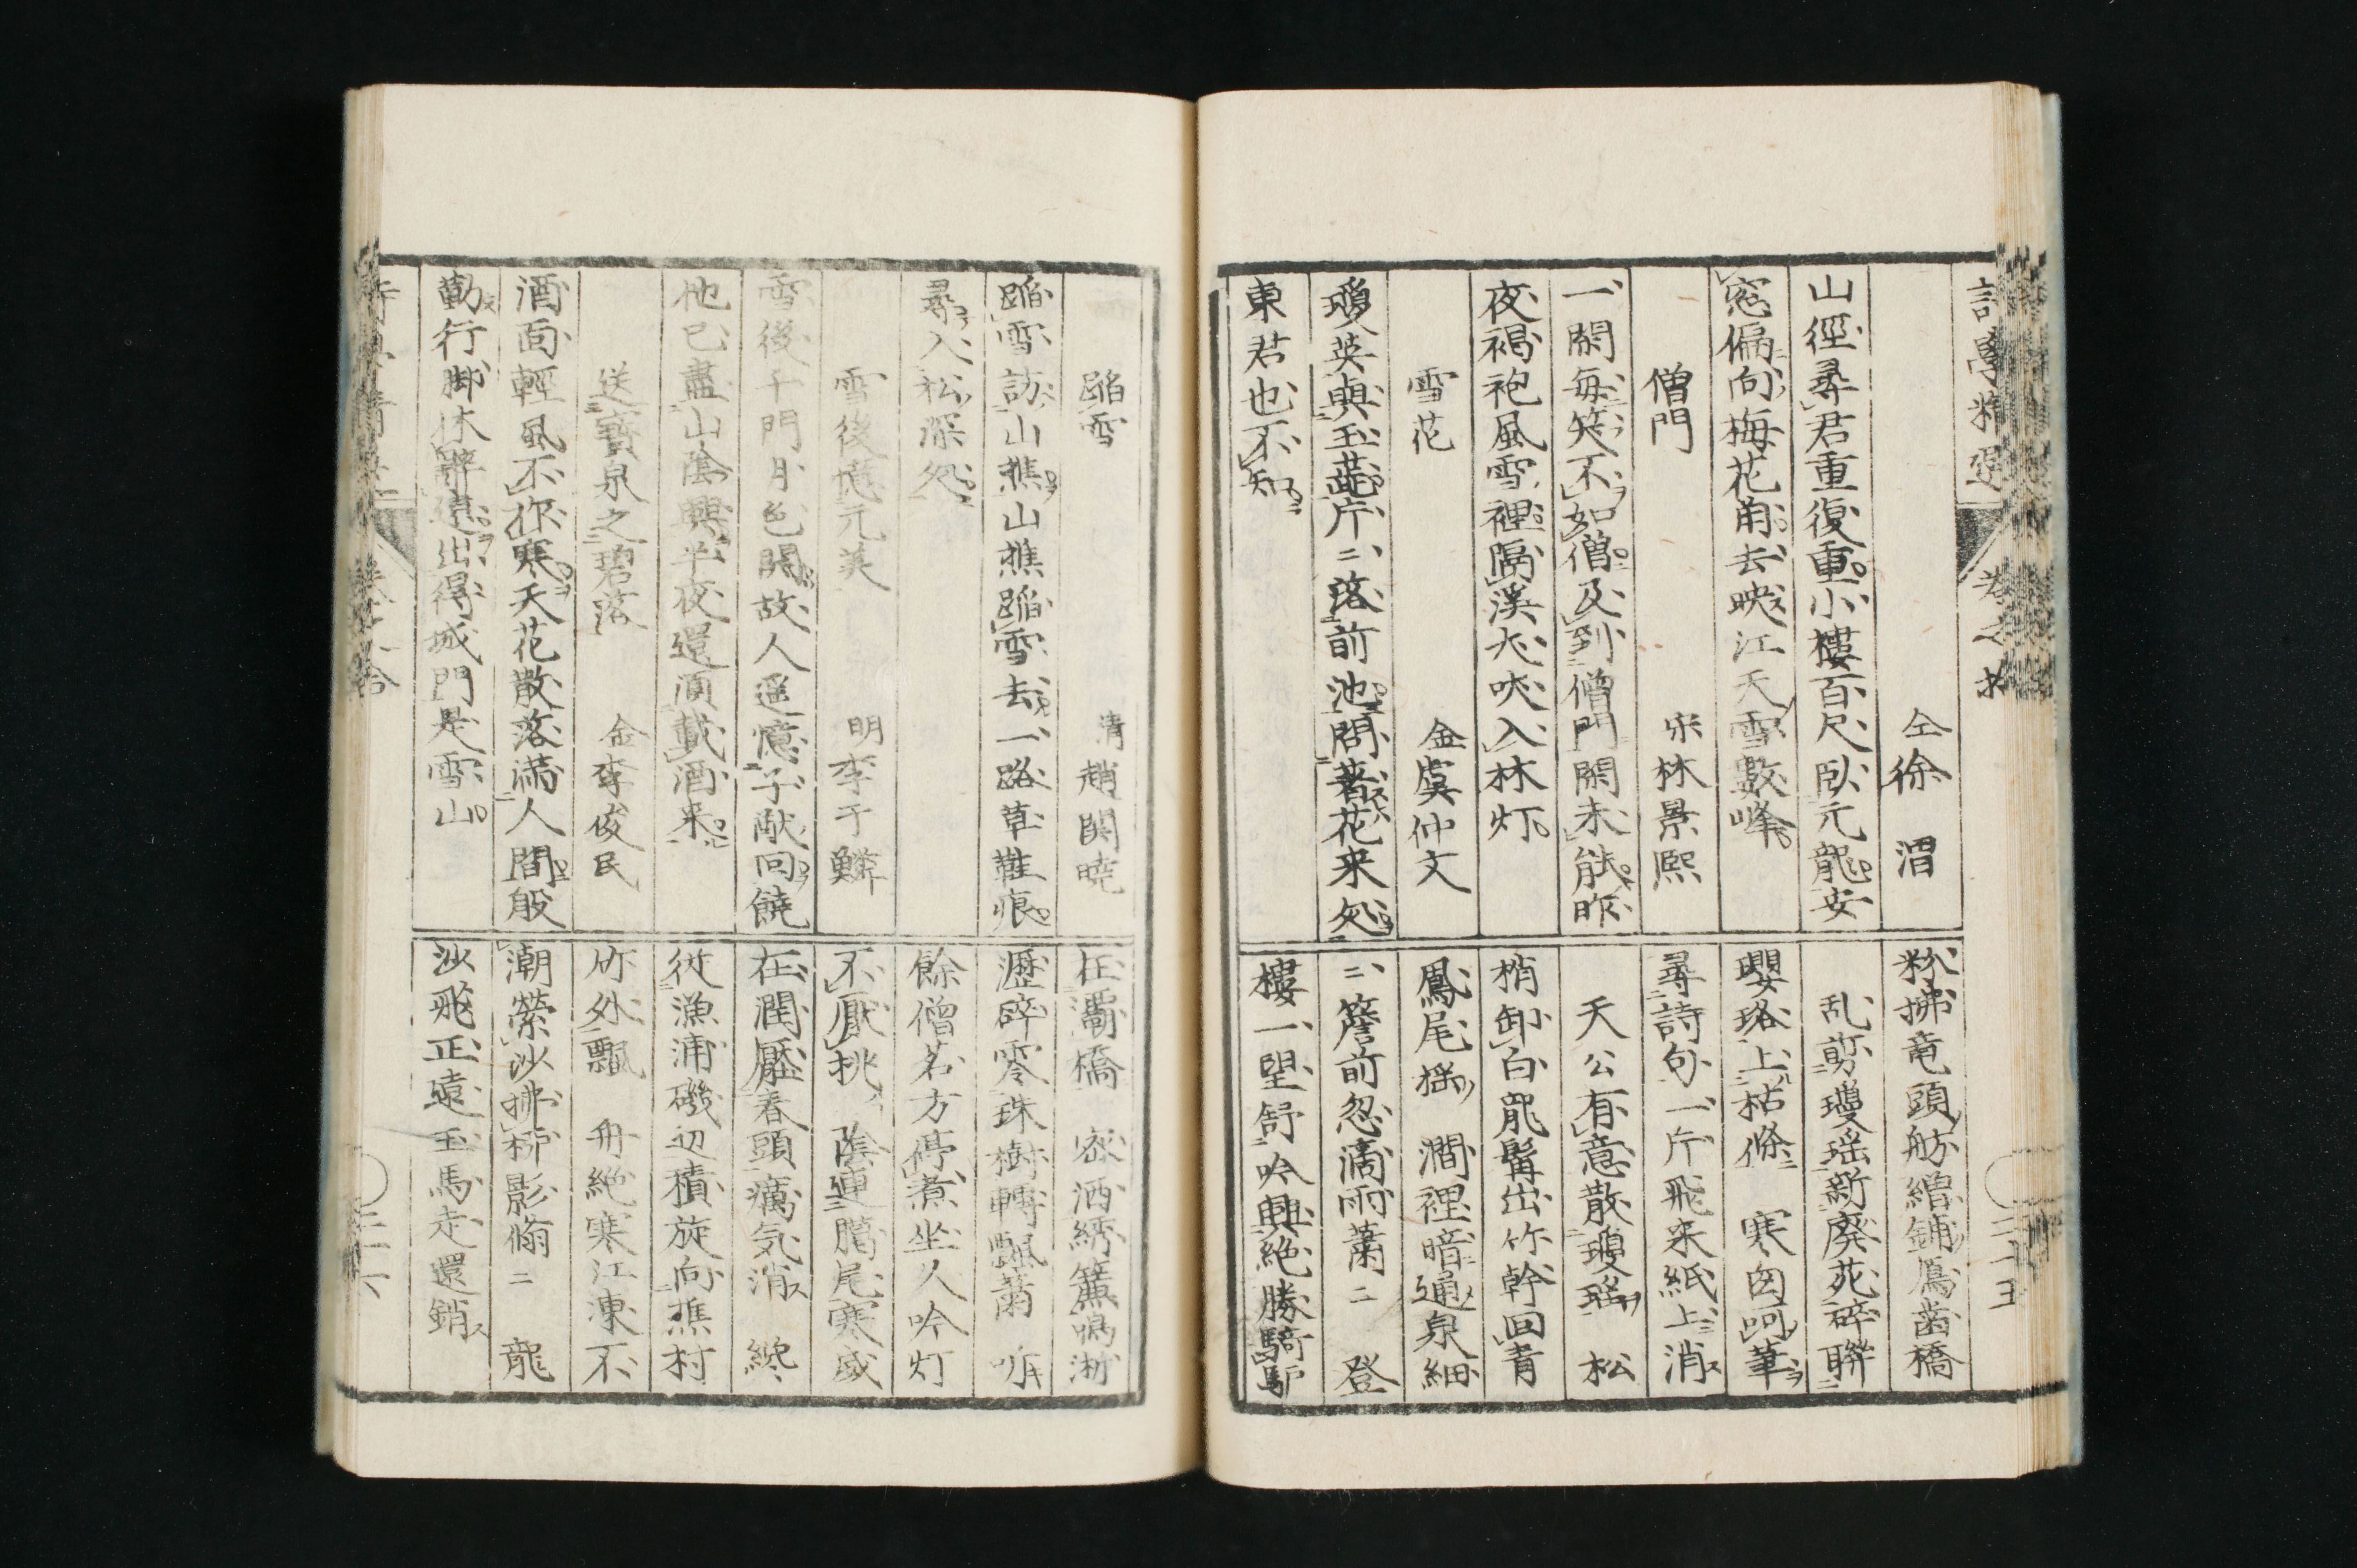 詩學精選 卷之
仝徐 渭
山徑尋君重復重小樓百尺臥元龍安
窓偏向梅花開去映江天雪數峰
僧門 宋林景熙
一關毎笑不如僧及到僧門關未能昨
夜褐袍風雪裡隔溪犬吠入林灯
雪花 金虞仲文
瓊英與玉蕋片二落前池問著花来処
東君也不知
粉拂竜頭舫繒鋪鳫歯橋
乱剪瓊瑶新廃苑碎聯
瓔珞上枯條 寒囱呵筆
尋詩句一片飛来紙上消
天公有意散瓊瑶 松
梢卸白龍髯出竹幹回青
鳳尾揺 澗裡暗通泉細
二簷前忽滴雨蕭二 登
樓一望舒吟興絶勝騎驴
蹈雪 清趙関曉
蹈雪訪山樵山樵蹈雪去一路草鞋痕
尋入松深処
雪後憶元美 明李于鱗
雪後千門月色開故人遥憶子猷回饒
他已盡山陰興半夜還須載酒来
送寶泉之碧落 金李俊民
酒面輕風不作寒天花散落満人間般
勤行脚休辞遠出得城門是雪山
在灞橋 密洒綉簾鳴淅
瀝碎零珠樹轉飄蕭
餘僧茗方停煮坐久吟灯
不厭挑 陰連臈尾寒威
在潤壓春頭癘気消 纔
從漁浦磯辺積旋向樵村
竹外飄 舟絶寒江凍不
潮縈沙拂柳影翛二 龍
沙飛正遠玉馬走還銷
二十六